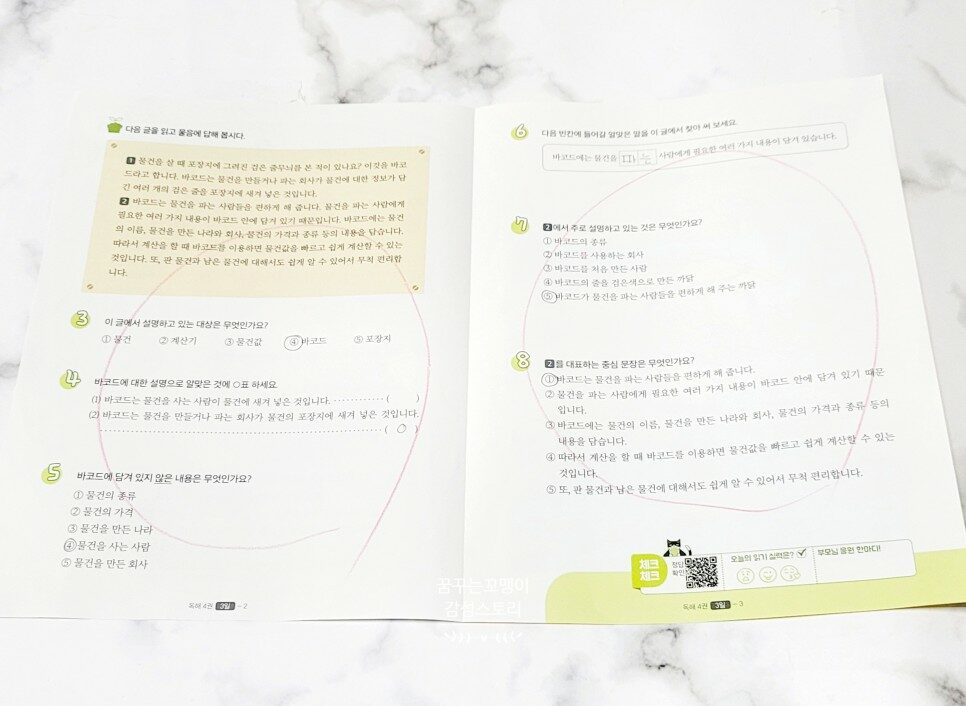 다음 글을 읽고 물음에 답해 봅시다.
1 물건을 살 때 포장지에 그려진 검은 줄무늬를 본 적이 있나요? 이것을 바코
드라고 합니다. 바코드는 물건을 만들거나 파는 회사가 물건에 대한 정보가 담
긴 여러 개의 검은 줄을 포장지에 새겨 넣은 것입니다.
2 바코드는 물건을 파는 사람들을 편하게 해 줍니다. 물건을 파는 사람에게
필요한 여러 가지 내용이 바코드 안에 담겨 있기 때문입니다. 바코드에는 물건
의 이름, 물건을 만든 나라와 회사, 물건의 가격과 종류 등의 내용을 담습니다.
따라서 계산을 할 때 바코드를 이용하면 물건값을 빠르고 쉽게 계산할 수 있는
것입니다. 또, 판 물건과 남은 물건에 대해서도 쉽게 알 수 있어서 무척 편리합
니다.
3 이 글에서 설명하고 있는 대상은 무엇인가요?
① 물건 ② 계산기 ③ 물건값 ④ 바코드 ⑤ 포장지
4 바코드에 대한 설명으로 알맞은 것에 ○표 하세요.
(1) 바코드는 물건을 사는 사람이 물건에 새겨 넣은 것입니다. ············ ( )
(2) 바코드는 물건을 만들거나 파는 회사가 물건의 포장지에 새겨 넣은 것입니다.
············ ( ○ )
5 바코드에 담겨 있지 않은 내용은 무엇인가요?
① 물건의 종류
② 물건의 가격
③ 물건을 만든 나라
④ 물건을 사는 사람
⑤ 물건을 만든 회사
독해 4권 3일 - 2
6 다음 빈칸에 들어갈 알맞은 말을 이 글에서 찾아 써 보세요.
바코드에는 물건을 사람에게 필요한 여러 가지 내용이 담겨 있습니다.
7 2에서 주로 설명하고 있는 것은 무엇인가요?
① 바코드의 종류
② 바코드를 사용하는 회사
③ 바코드를 처음 만든 사람
④ 바코드의 줄을 검은색으로 만든 까닭
⑤ 바코드가 물건을 파는 사람들을 편하게 해 주는 까닭
8 2를 대표하는 중심 문장은 무엇인가요?
① 바코드는 물건을 파는 사람들을 편하게 해 줍니다.
② 물건을 파는 사람에게 필요한 여러 가지 내용이 바코드 안에 담겨 있기 때문
입니다.
③ 바코드에는 물건의 이름, 물건을 만든 나라와 회사, 물건의 가격과 종류 등의
내용을 담습니다.
④ 따라서 계산을 할 때 바코드를 이용하면 물건값을 빠르고 쉽게 계산할 수 있는
것입니다.
⑤ 또, 판 물건과 남은 물건에 대해서도 쉽게 알 수 있어서 무척 편리합니다.
체크
체크
정답
확인
오늘의 읽기 실력은?
부모님 응원 한마디!
독해 4권 3일 - 3
꿈꾸는꼬맹이
감성스토리